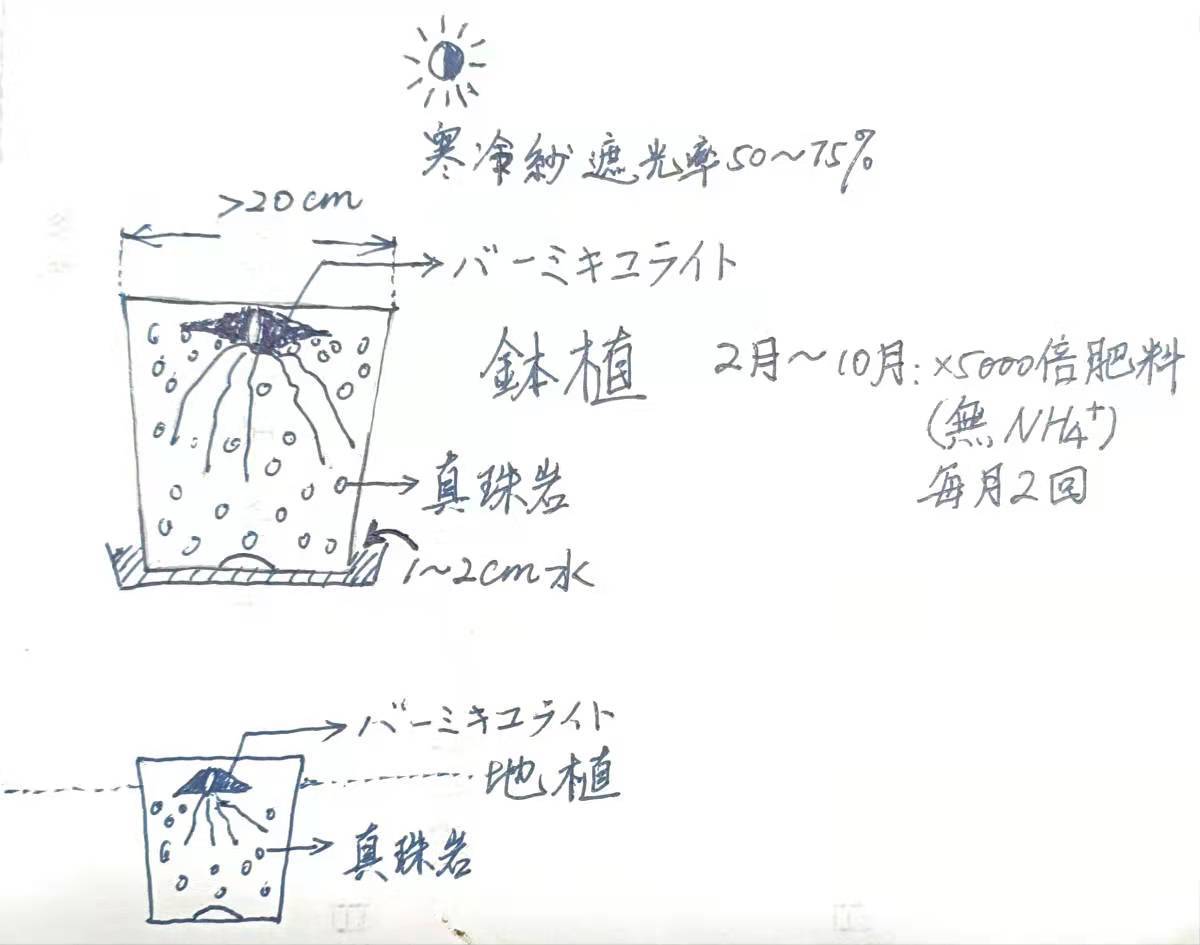 寒冷紗遮光率50～75%
>20cm
バーミキュライト
鉢植
2月～10月:×5000倍肥料
(無NH₄⁺)
毎月2回
真珠岩
1～2cm水
バーミキュライト
地植
真珠岩